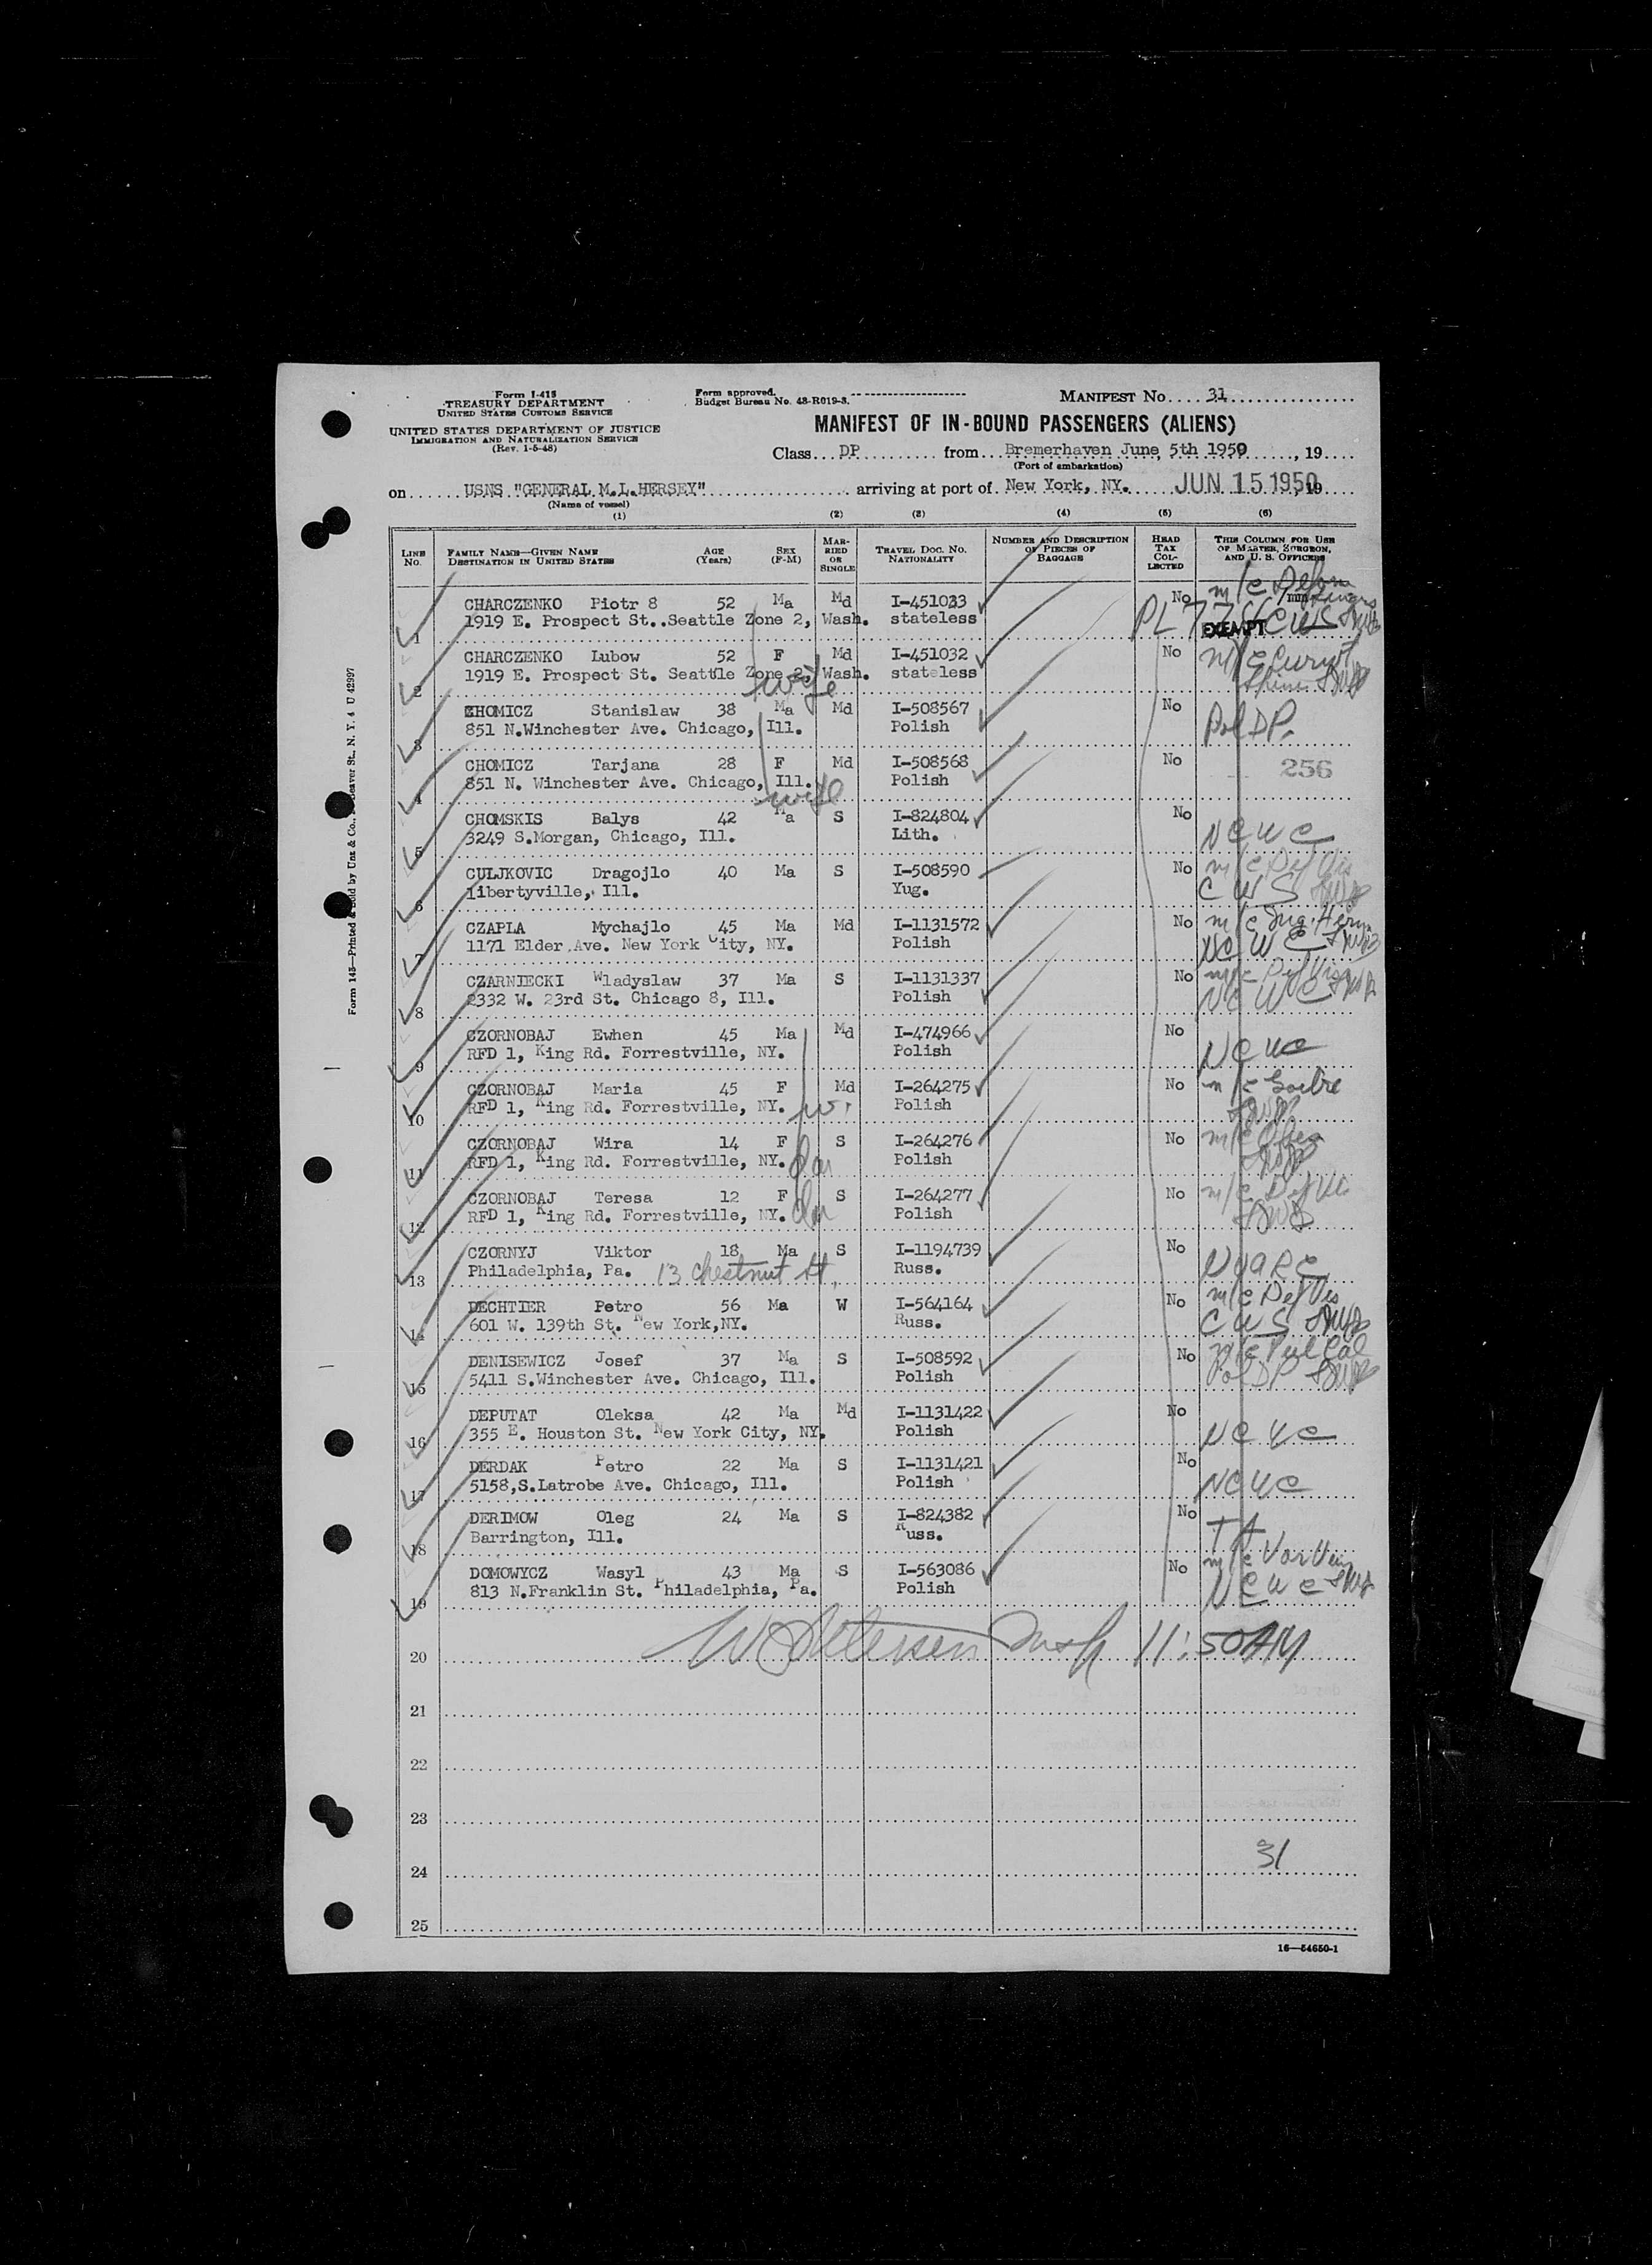 Form I-415
TREASURY DEPARTMENT
UNITED STATES CUSTOMS SERVICE
UNITED STATES DEPARTMENT OF JUSTICE
IMMIGRATION AND NATURALIZATION SERVICE
(Rev. 1-5-48)
Form approved.
Budget Bureau No. 43-R019-3.
MANIFEST No. 31
MANIFEST OF IN-BOUND PASSENGERS (ALIENS)
Class DP from Bremerhaven June, 5th 1950, 19
(Port of embarkation)
on USNS "GENERAL M.L.HERSEY" arriving at port of New York, NY. JUN 15 1950, 19
(Name of vessel)
(1) (2) (3) (4) (5) (6)
LINE No. FAMILY NAME—GIVEN NAME DESTINATION IN UNITED STATES AGE (Years) SEX (F-M) MARRIED OR SINGLE TRAVEL DOC. NO. NATIONALITY NUMBER AND DESCRIPTION OF PIECES OF BAGGAGE HEAD TAX COLLECTED THIS COLUMN FOR USE OF MASTER, SURGEON, AND U. S. OFFICERS
CHARCZENKO Piotr 8 52 Ma Md I-451033 No m/c
1 1919 E. Prospect St..Seattle Zone 2, Wash. stateless EXEMPT CWS
CHARCZENKO Lubow 52 F Md I-451032 No m/c
2 1919 E. Prospect St. Seattle Zone 2, Wash. stateless
wife
CHOMICZ Stanislaw 38 Ma Md I-508567 No
3 851 N.Winchester Ave. Chicago, Ill. Polish Pol DP.
CHOMICZ Tarjana 28 F Md I-508568 No 256
4 851 N. Winchester Ave. Chicago, Ill. Polish
wife
CHOMSKIS Balys 42 Ma S I-824804 No
5 3249 S.Morgan, Chicago, Ill. Lith. NCWC
CULJKOVIC Dragojlo 40 Ma S I-508590 No m/c Def Vis
6 libertyville, Ill. Yug. CWS
CZAPLA Mychajlo 45 Ma Md I-1131572 No m/c Ing. Hern
7 1171 Elder Ave. New York City, NY. Polish NCWC
CZARNIECKI Wladyslaw 37 Ma S I-1131337 No m/c Def Vis
8 2332 W. 23rd St. Chicago 8, Ill. Polish NCWC
CZORNOBAJ Ewhen 45 Ma Md I-474966 No
9 RFD 1, King Rd. Forrestville, NY. Polish NCWC
CZORNOBAJ Maria 45 F Md I-264275 No m/c Goitre
10 RFD 1, King Rd. Forrestville, NY. w. Polish
CZORNOBAJ Wira 14 F S I-264276 No m/c
11 RFD 1, King Rd. Forrestville, NY. dau Polish
CZORNOBAJ Teresa 12 F S I-264277 No m/c Def Vis
12 RFD 1, King Rd. Forrestville, NY. dau Polish
CZORNYJ Viktor 18 Ma S I-1194739 No
13 Philadelphia, Pa. 13 Chestnut St. Russ.
DECHTIER Petro 56 Ma W I-564164 No m/c Def Vis
14 601 W. 139th St. New York,NY. Russ. CWS
DENISEWICZ Josef 37 Ma S I-508592 No m/c Pul Cal
15 5411 S.Winchester Ave. Chicago, Ill. Polish Pol DP
DEPUTAT Oleksa 42 Ma Md I-1131422 No
16 355 E. Houston St. New York City, NY. Polish NCWC
DERDAK Petro 22 Ma S I-1131421 No
17 5158,S.Latrobe Ave. Chicago, Ill. Polish NCWC
DERIMOW Oleg 24 Ma S I-824382 No
18 Barrington, Ill. Russ. TF
DOMOWYCZ Wasyl 43 Ma S I-563086 No m/c Var Vein
19 813 N.Franklin St. Philadelphia, Pa. Polish NCWC
20 11:50 AM
21
22
23
24 31
25
16—54650-1
Form 145—Printed & Sold by Unz & Co., Beaver St., N. Y. 4 U 42997